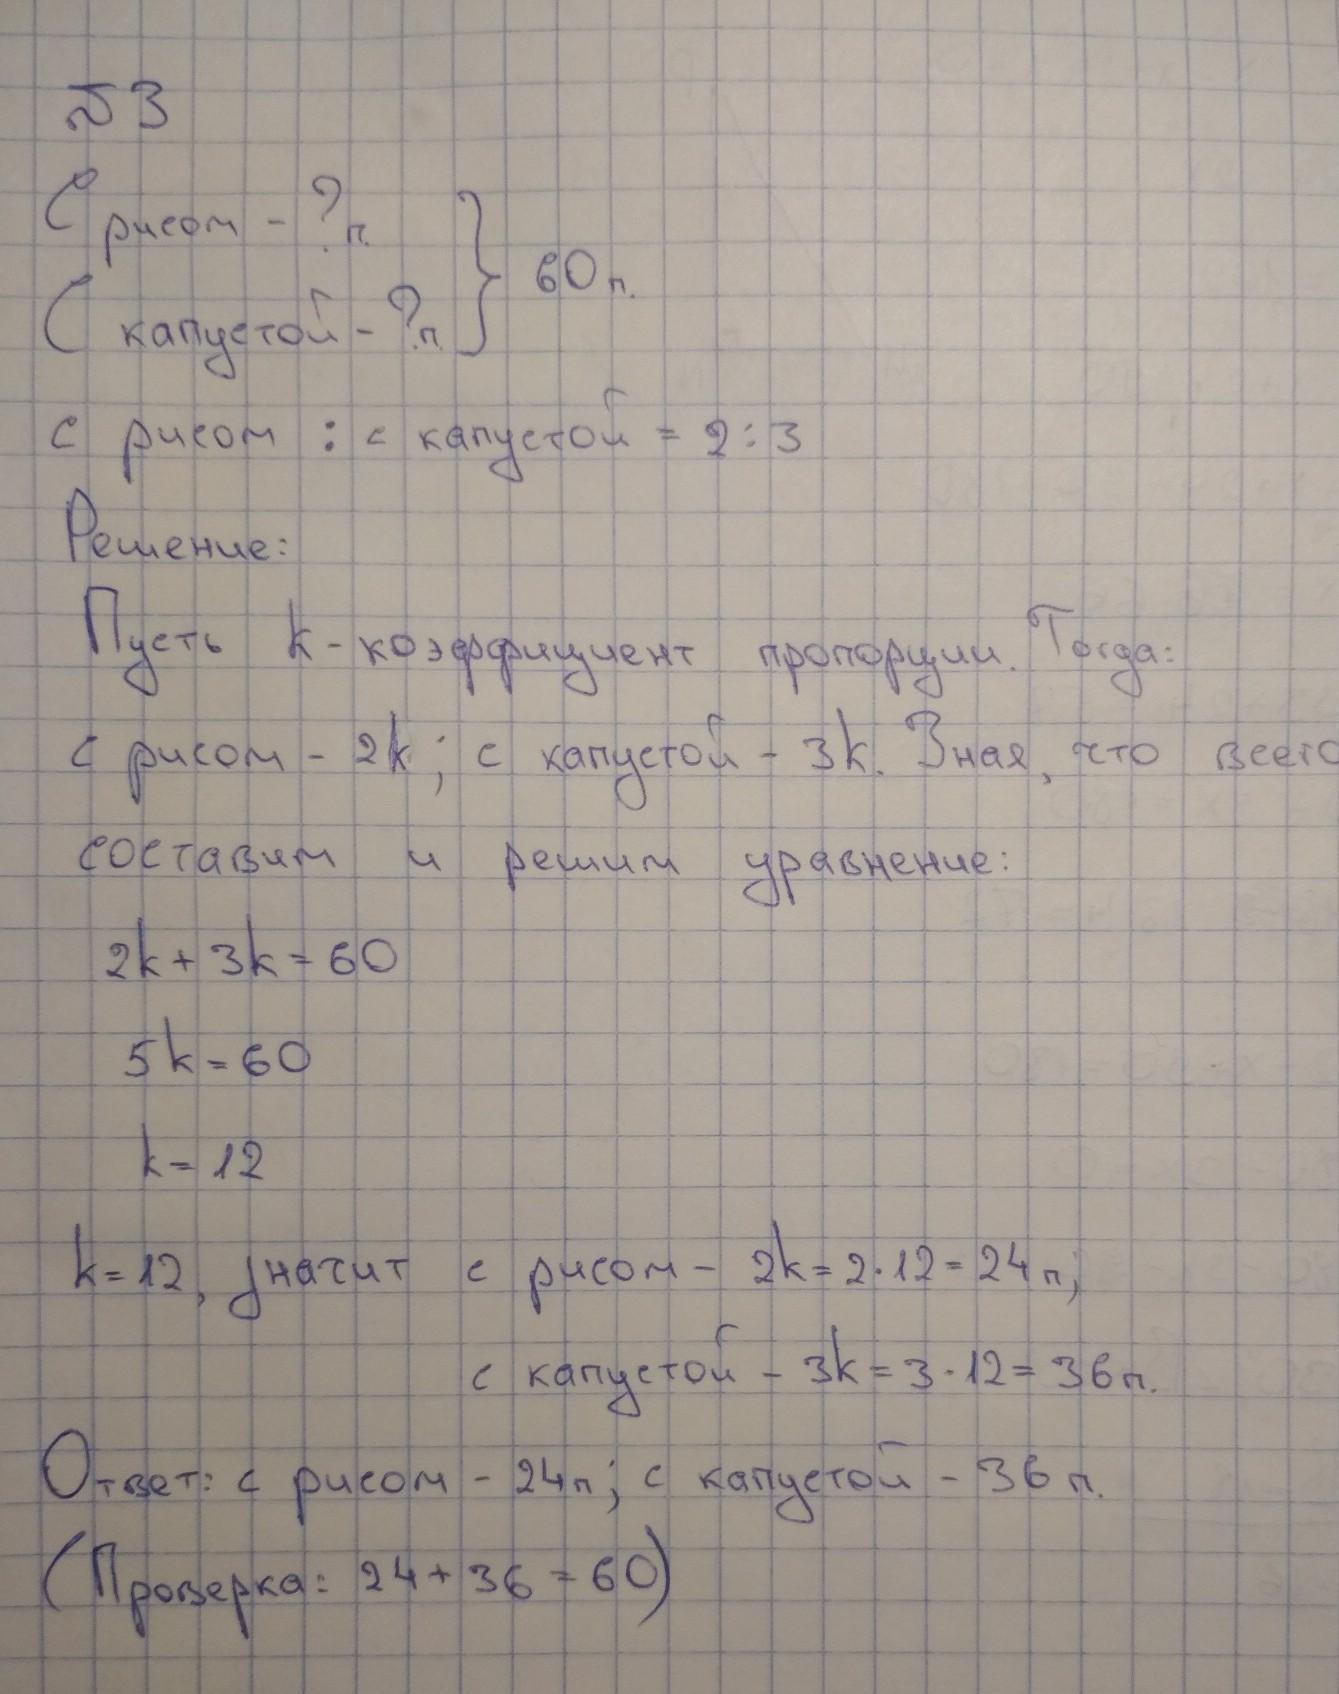 №3
С рисом - ? п.
С капустой - ? п.
60 п.
с рисом : с капустой = 2 : 3
Решение:
Пусть k - коэффициент пропорции. Тогда:
с рисом - 2k; с капустой - 3k. Зная, что всего
составим и решим уравнение:
2k + 3k = 60
5k = 60
k = 12
k = 12, значит с рисом - 2k = 2 · 12 = 24 п;
с капустой - 3k = 3 · 12 = 36 п.
Ответ: с рисом - 24 п; с капустой - 36 п.
(Проверка: 24 + 36 = 60)